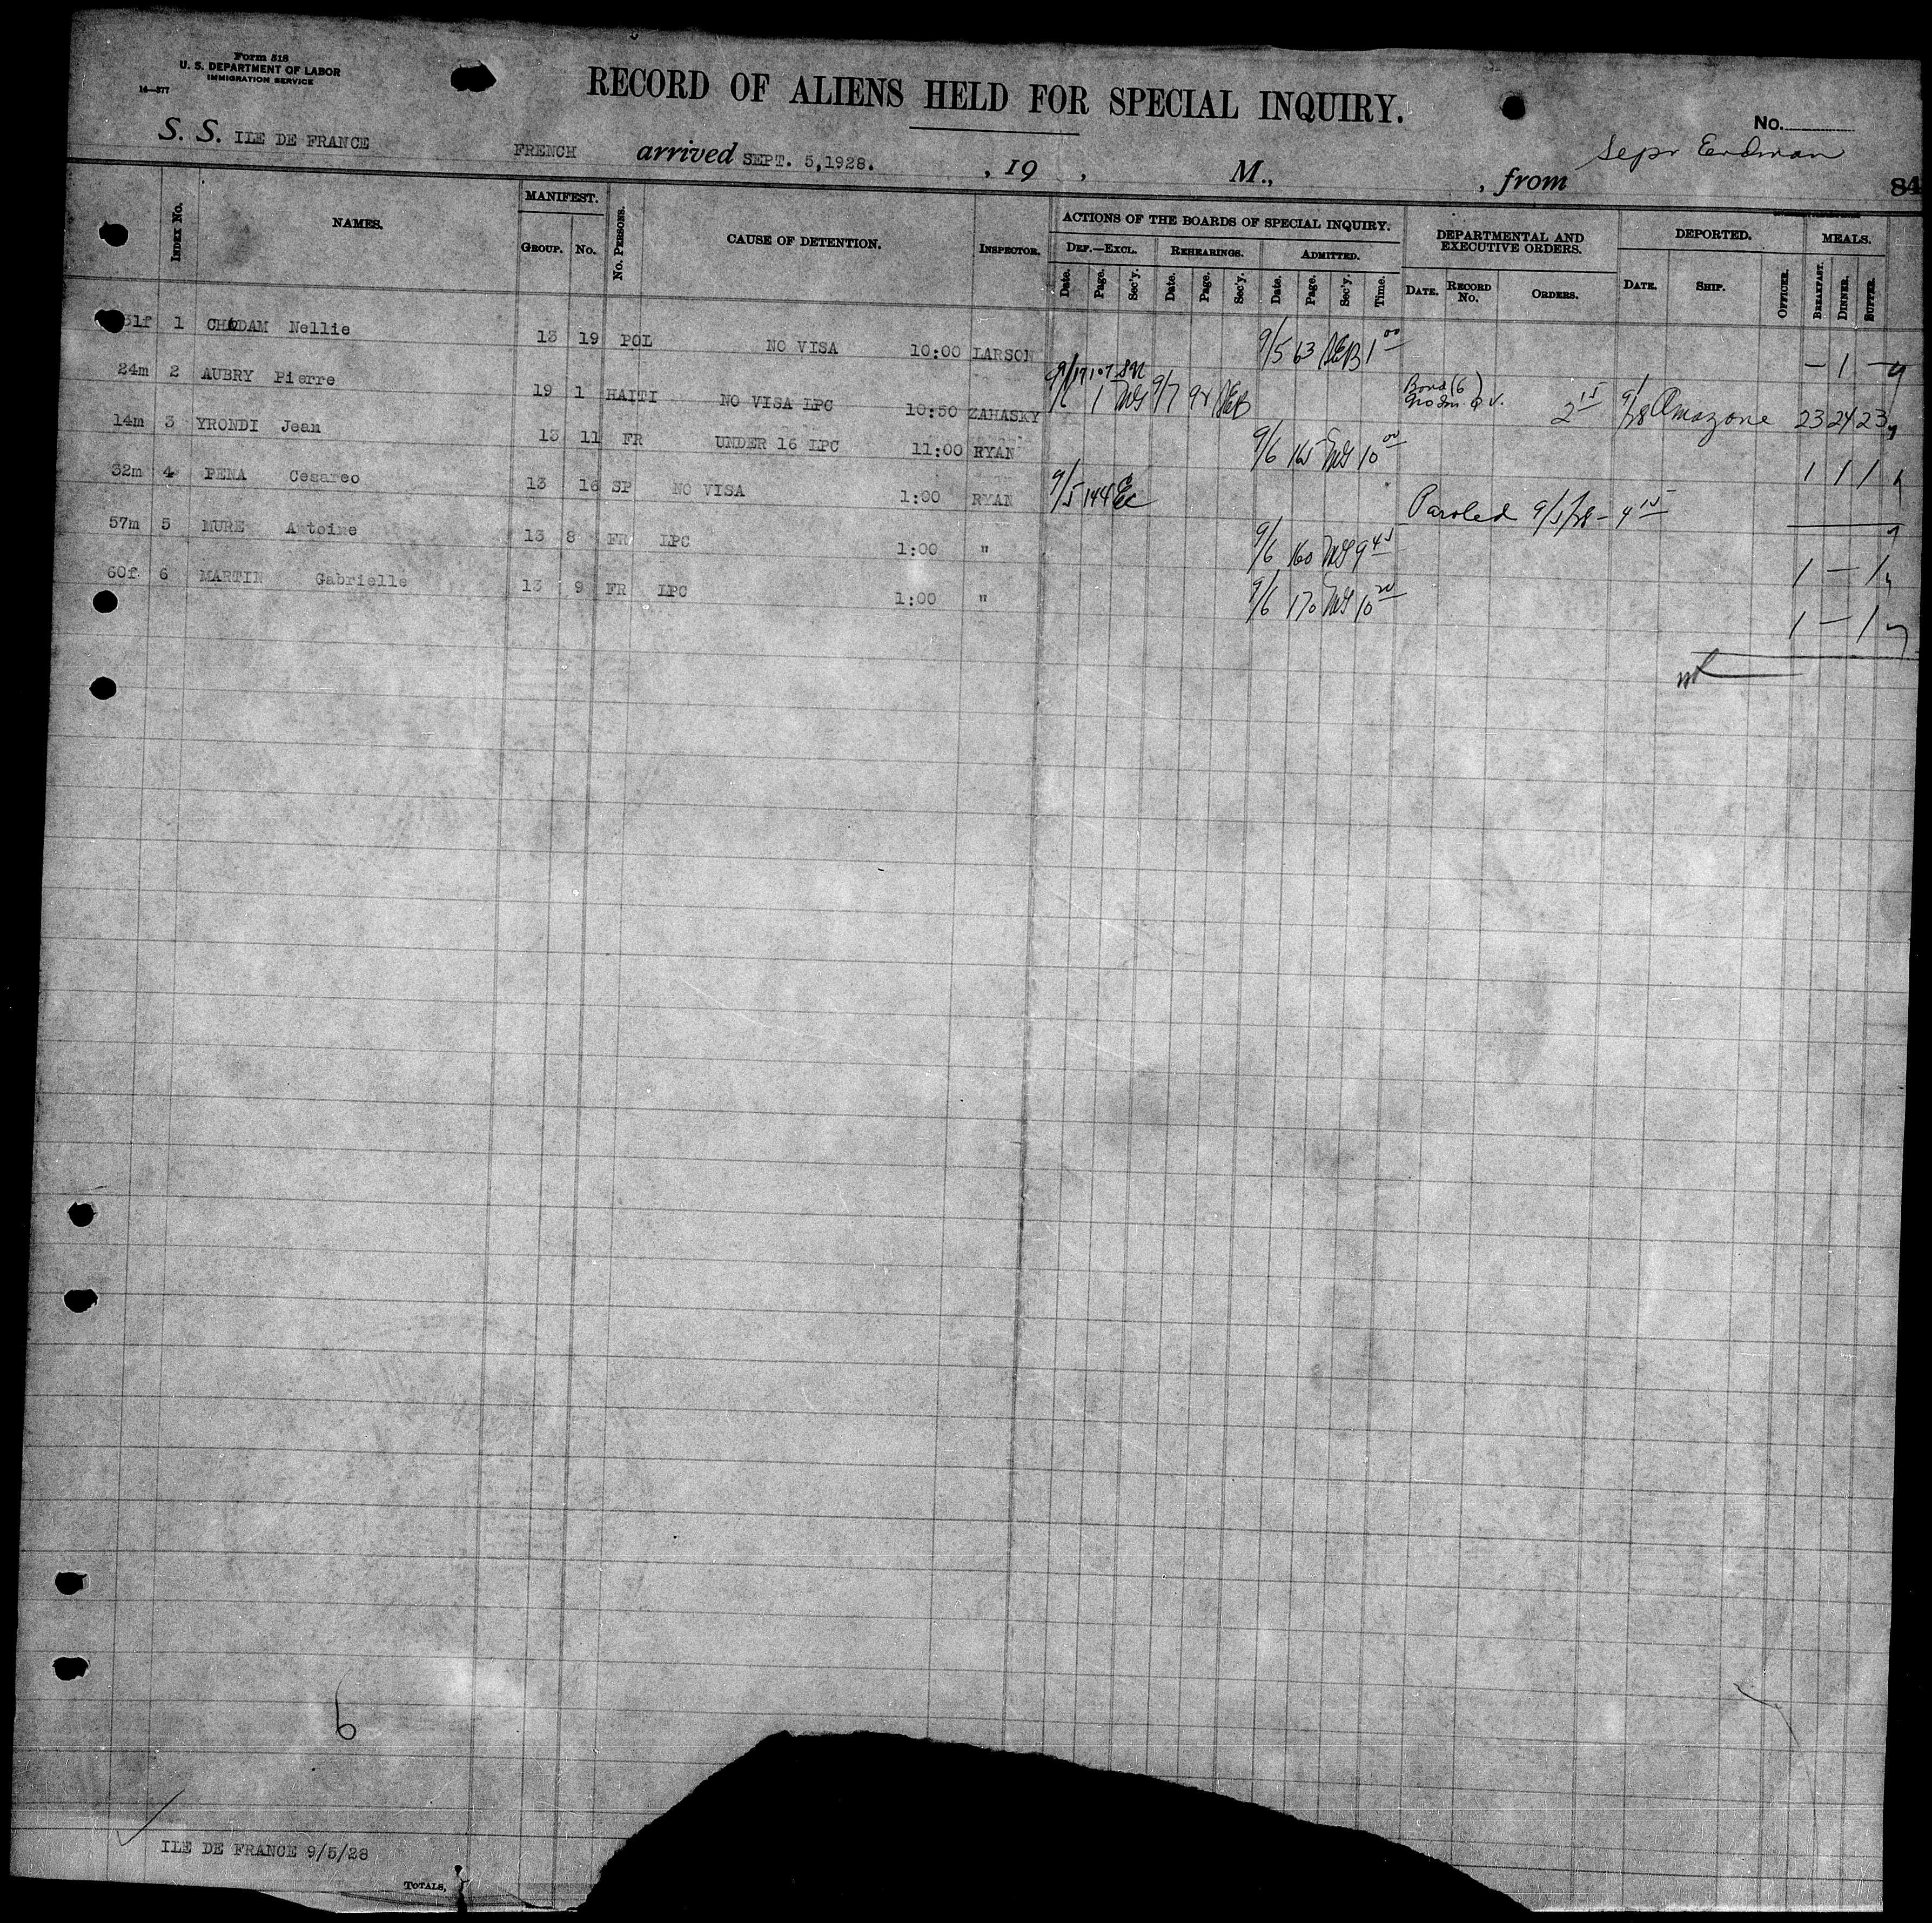 Form 518
U. S. DEPARTMENT OF LABOR
IMMIGRATION SERVICE
14—377
RECORD OF ALIENS HELD FOR SPECIAL INQUIRY.
No.
S. S. ILE DE FRANCE FRENCH arrived SEPT. 5,1928. , 19 , M., , from
84
INDEX No. NAMES. MANIFEST. GROUP. No. No. PERSONS. CAUSE OF DETENTION. INSPECTOR. ACTIONS OF THE BOARDS OF SPECIAL INQUIRY. DEPARTMENTAL AND EXECUTIVE ORDERS. DEPORTED. MEALS.
DEF.—EXCL. REHEARINGS. ADMITTED.
Date. Page. Sec'y. Date. Page. Sec'y. Date. Page. Sec'y. Time. DATE. RECORD No. ORDERS. DATE. SHIP. OFFICER. BREAKFAST. DINNER. SUPPER.
31f 1 Nellie 13 19 POL NO VISA 10:00 LARSON 9/5 63 1 00 — 1 —
24m 2 AUBRY Pierre 19 1 HAITI NO VISA LPC 10:50 ZAHASKY 9/6 1 9/7 Bond 2 15 9/28 Amazone 23 24 23
14m 3 YRONDI Jean 13 11 FR UNDER 16 LPC 11:00 RYAN 9/6 165 10 00 1 1 1
32m 4 PENA Cesareo 13 16 SP NO VISA 1:00 RYAN 9/5 144 Paroled 9/5/28 - 4 15
57m 5 MURE Antoine 13 8 FR LPC 1:00 " 9/6 160 9 45 1 — 1
60f 6 MARTIN Gabrielle 13 9 FR LPC 1:00 " 9/6 170 10 20 1 — 1
6
ILE DE FRANCE 9/5/28
TOTALS,